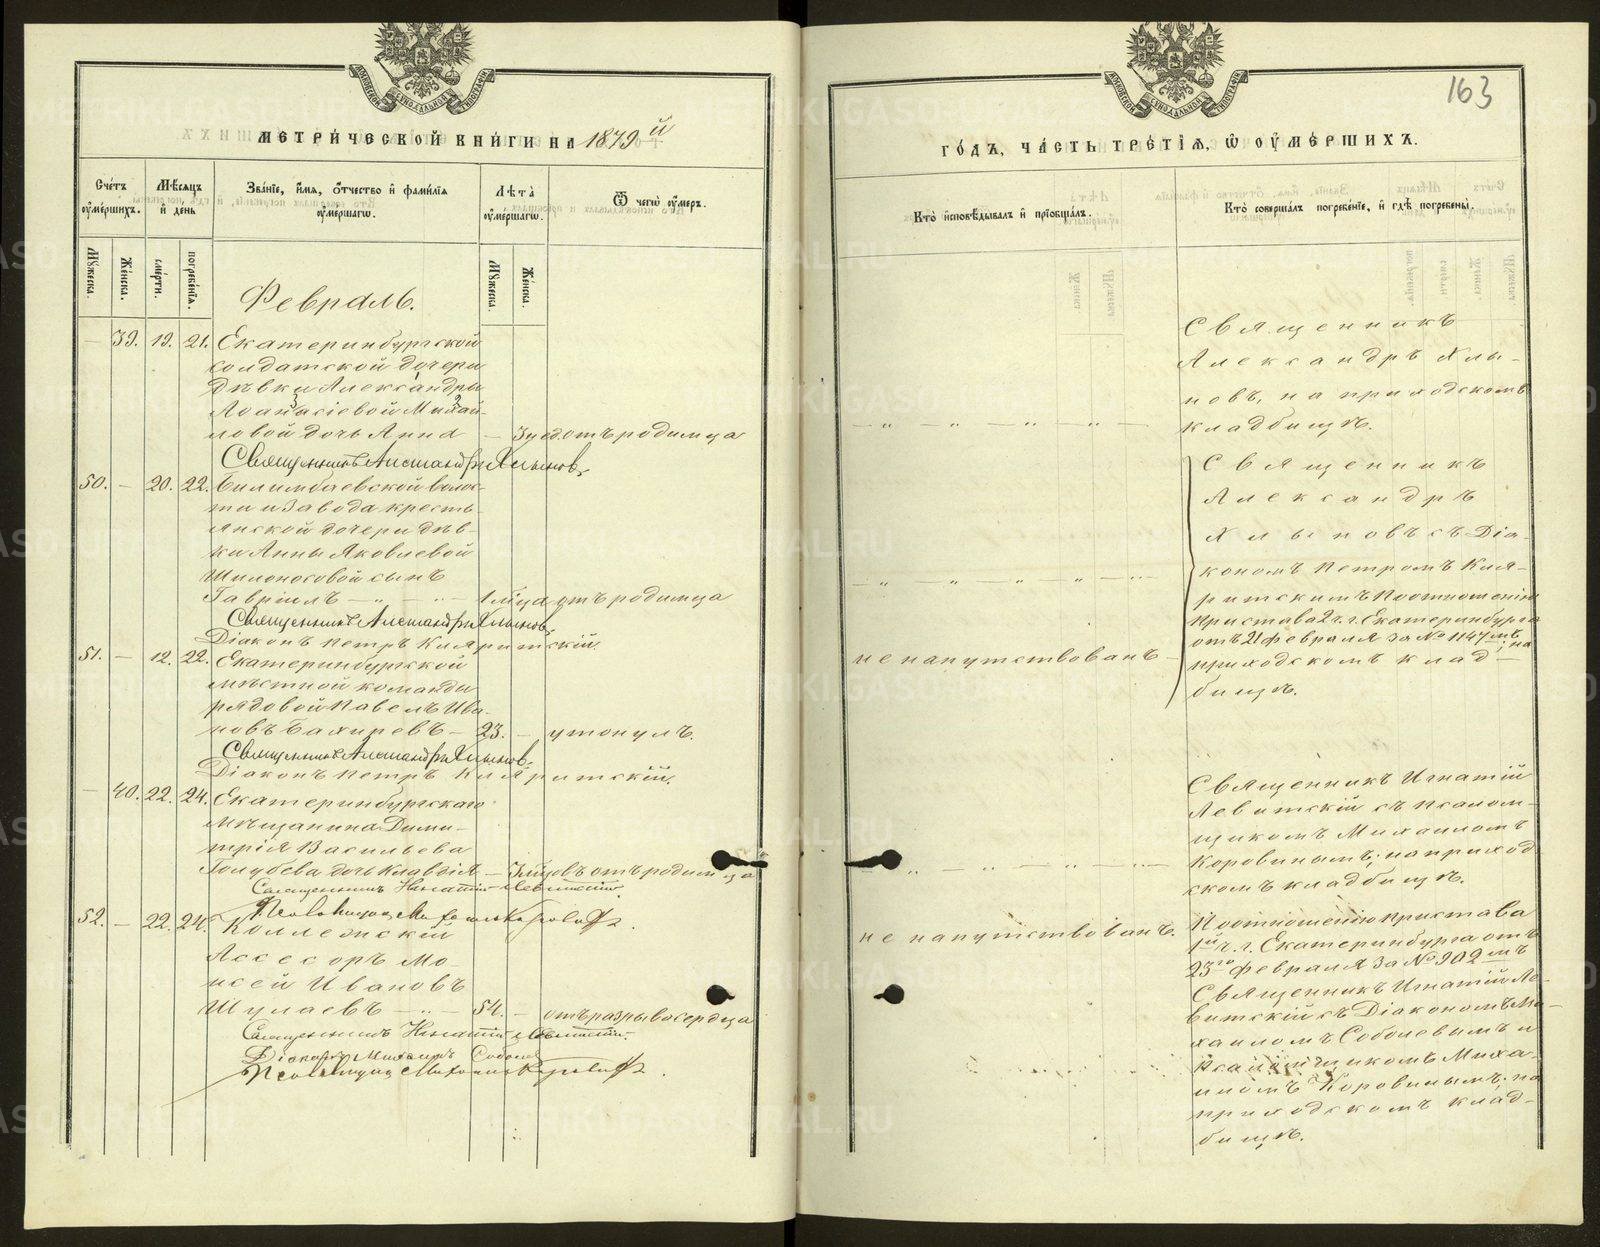 МЕТРИ́ЧЕСКОЙ КНИ́ГИ НА 1879й
Счетъ оумершихъ.
Мѣсяцъ и день
Званіе, имя, отчество и фамилія оумершагѡ.
Лѣта оумершагѡ.
Ѿ чегѡ оумеръ.
Мужеска.
Женска.
смерти.
погребенія.
Мужеска.
Женска.
Февраль.
39. 19. 21. Екатеринбургской
солдатской дочери
дѣвки Александры
Аѳанасіевой Михай-
ловой дочь Анна — 3 нед. отъ родимца
Священникъ Александръ Хлыновъ
50. — 20. 22. Билимбаевской волос-
ти и Завода кресть-
янской дочери дѣв-
ки Анны Яковлевой
Шилоносовой сынъ
Гавріилъ — „ — „ — 1 мѣсца отъ родимца
Священникъ Александръ Хлыновъ
Діаконъ Петръ Кляритскій.
51. — 12. 22. Екатеринбургской
мѣстной команды
рядовой Павелъ Ива-
новъ Бахиревъ — 23. — утонулъ.
Священникъ Александръ Хлыновъ
Діаконъ Петръ Кляритскій.
— 40. 22. 24. Екатеринбургскаго
мѣщанина Дими-
трія Васильева
Голубева дочь Клавдія — 3 мѣсцовъ отъ родимца
Священникъ Игнатій Левитскій
Псаломщикъ Михаилъ Коровинъ.
52. — 22. 24. Коллежскій
Ассесоръ Мо-
исей Ивановъ
Шулаевъ — „ — 54. — отъ разрыва сердца
Священникъ Игнатій Левитскій.
Діаконъ Михаилъ Соболевъ
Псаломщикъ Михаилъ Коровинъ.
163
ГО́ДЪ, ЧА́СТЬ ТРЕ́ТІѦ, Ѡ ОУМЕ́РШИХЪ.
Кто исповѣдывалъ и пріобщалъ.
Кто совершалъ погребеніе, и гдѣ погребены.
Священникъ
Александръ Хлы-
новъ, на приходскомъ
— „ — „ — „ — „ — кладбищѣ.
Священникъ
Александръ
Хлыновъ съ Діа-
— „ — „ — „ — кономъ Петромъ Кля-
ритскимъ По отношенію
Пристава 2 ч. г. Екатеринбурга
отъ 21 Февраля за № 1147мъ; на
не напутствованъ — приходскомъ клад-
бищѣ.
Священникъ Игнатій
Левитскій съ Псалом-
щикомъ Михаиломъ
— „ — „ — „ — Коровинымъ; на приход-
скомъ кладбищѣ.
не напутствованъ. По отношенію пристава
1й ч. г. Екатеринбурга отъ
23го Февраля за № 902мъ
Священникъ Игнатій Ле-
витскій съ Діакономъ Ми-
хаиломъ Соболевымъ и
Псаломщикомъ Миха-
иломъ Коровинымъ; на
приходскомъ клад-
бищѣ.